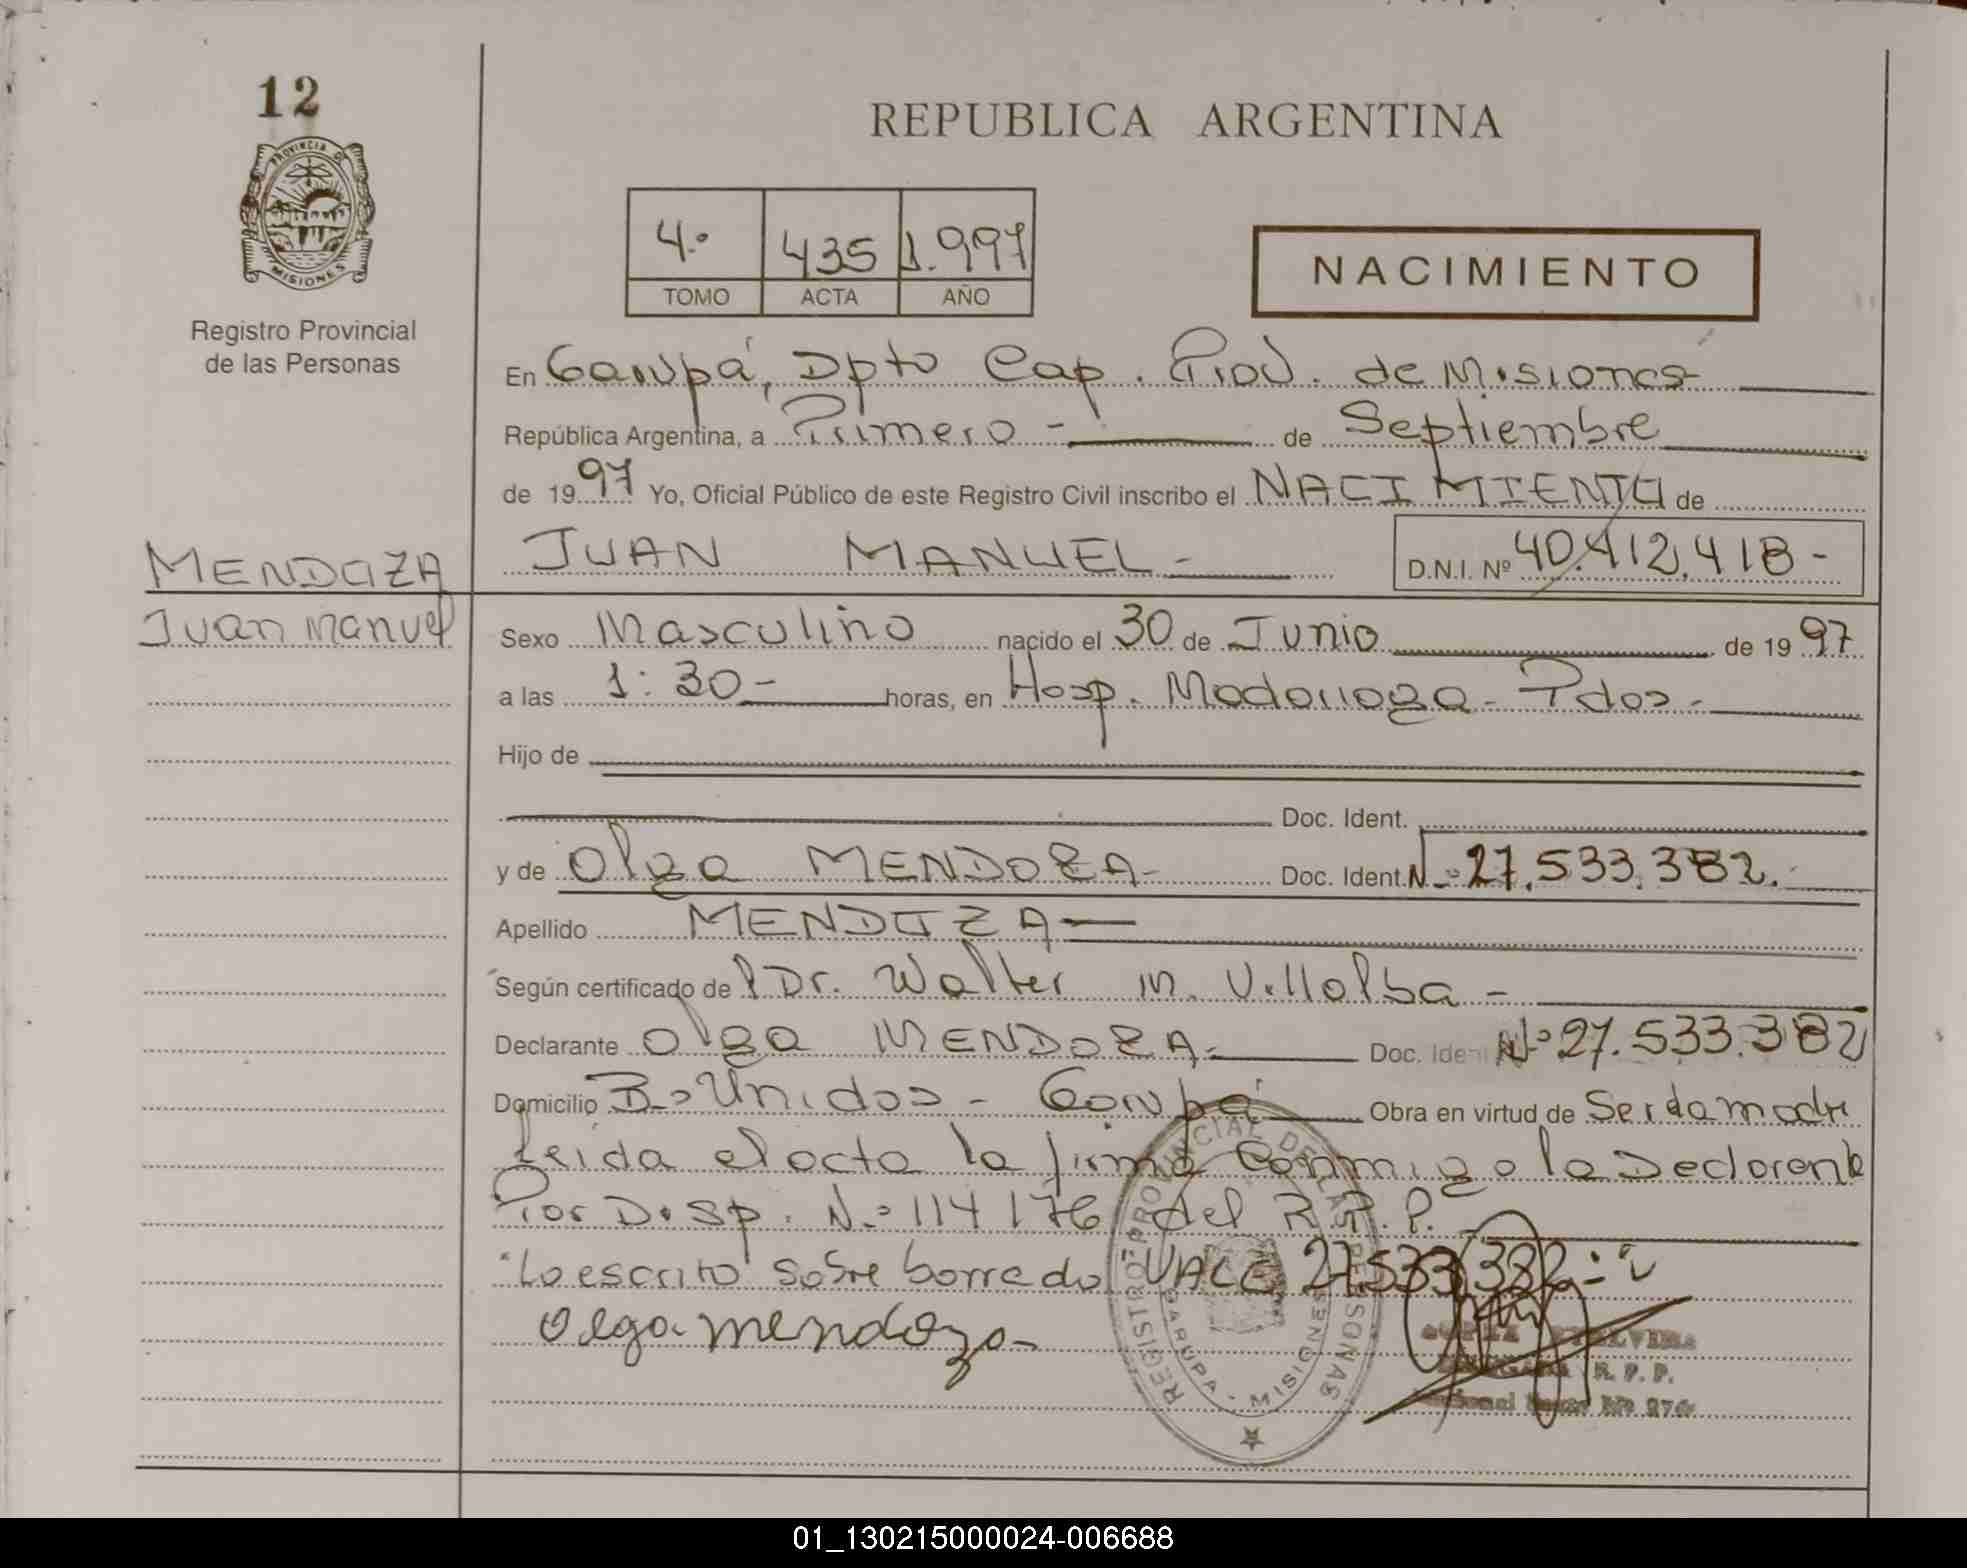 12
REPUBLICA ARGENTINA
PROVINCIA DE
MISIONES
4.º 435 1.997
TOMO ACTA AÑO
NACIMIENTO
Registro Provincial
de las Personas
En Garupá, Dpto Cap. Prov. de Misiones
República Argentina, a Primero - de Septiembre
de 1997 Yo, Oficial Público de este Registro Civil inscribo el NACIMIENTO de
MENDOZA JUAN MANUEL - D.N.I. Nº 40.412.418 -
Juan Manuel Sexo Masculino nacido el 30 de Junio de 1997
a las 1:30 - horas, en Hosp. Madariaga - Pdas -
Hijo de
Doc. Ident.
y de Olga MENDOZA - Doc. Ident. Nº 27.533.382.
Apellido MENDOZA -
Según certificado de l Dr. Walter M. Villalba -
Declarante Olga MENDOZA - Doc. Ident Nº 27.533.382
Domicilio Bº Unidos - Garupá Obra en virtud de Ser da madre
Leida el acta la firma conmigo la Declarante
Por Disp. Nº 114176 del R.P.P.
"Lo escrito sobre borrado VALE 27.533.382 -"
Olga mendoza -
REGISTRO PROVINCIAL DE LAS PERSONAS
GARUPA - MISIONES
R. P. P.
01_130215000024-006688